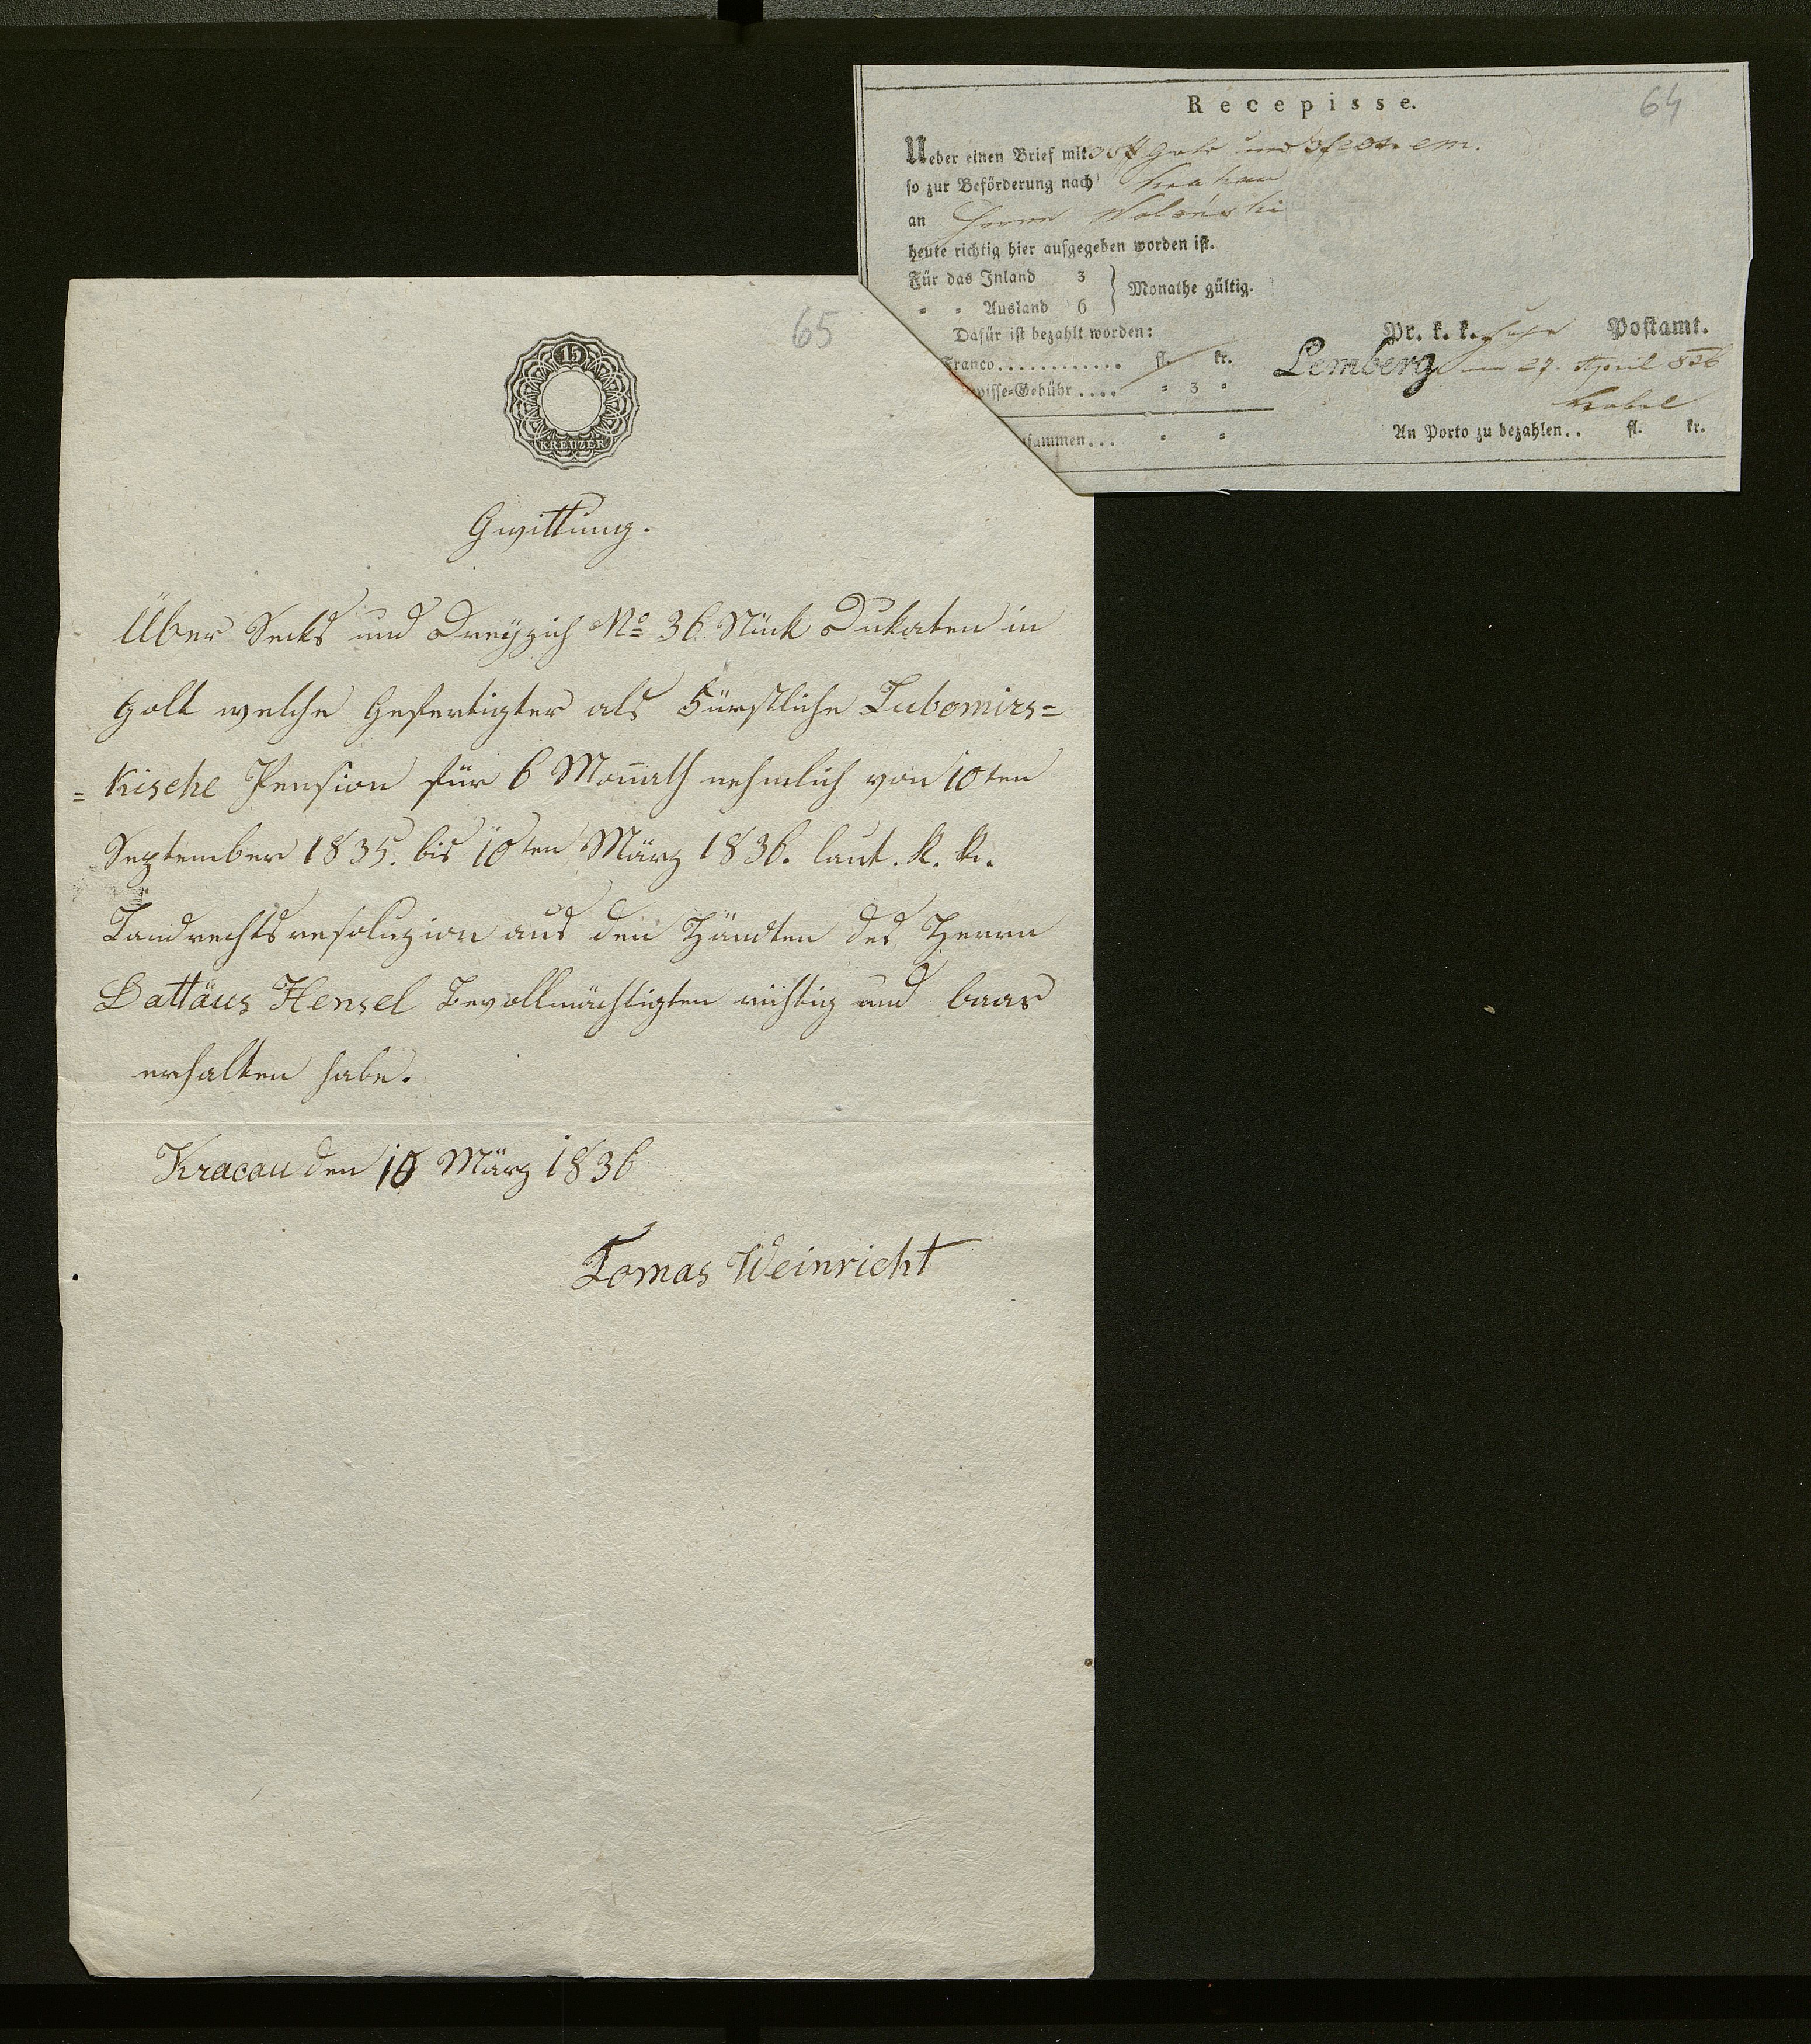 Recepisse.
64
Ueber einen Brief mit und
so zur Beförderung nach Krakau
an Herrn Wolanski
heute richtig hier aufgegeben worden ist.
Für das Inland 3
" " Ausland 6 } Monathe gültig.
Dafür ist bezahlt worden:
Franco............ fl. kr.
pisse-Gebühr.... " 3 "
sammen... " "
Pr. k. k. Postamt.
Lemberg am 27. April 836
An Porto zu bezahlen.. fl. kr.
65
15
KREUZER
Gwittung.
Über Secks und Dreyzich No 36 Stück Dukaten in
Golt welche Gefertigter als Fürstliche Lubomirs=
=kische Pension für 6 Monath nehmlich von 10ten
September 1835. bis 10ten März 1836. laut. K. K.
Landrechtsresoluzion aus den Händten des Herrn
Dattäus Hensel Bevollmächtigten richtig und baar
erhalten habe.
Kracau den 10 März 1836
Tomas Weinricht